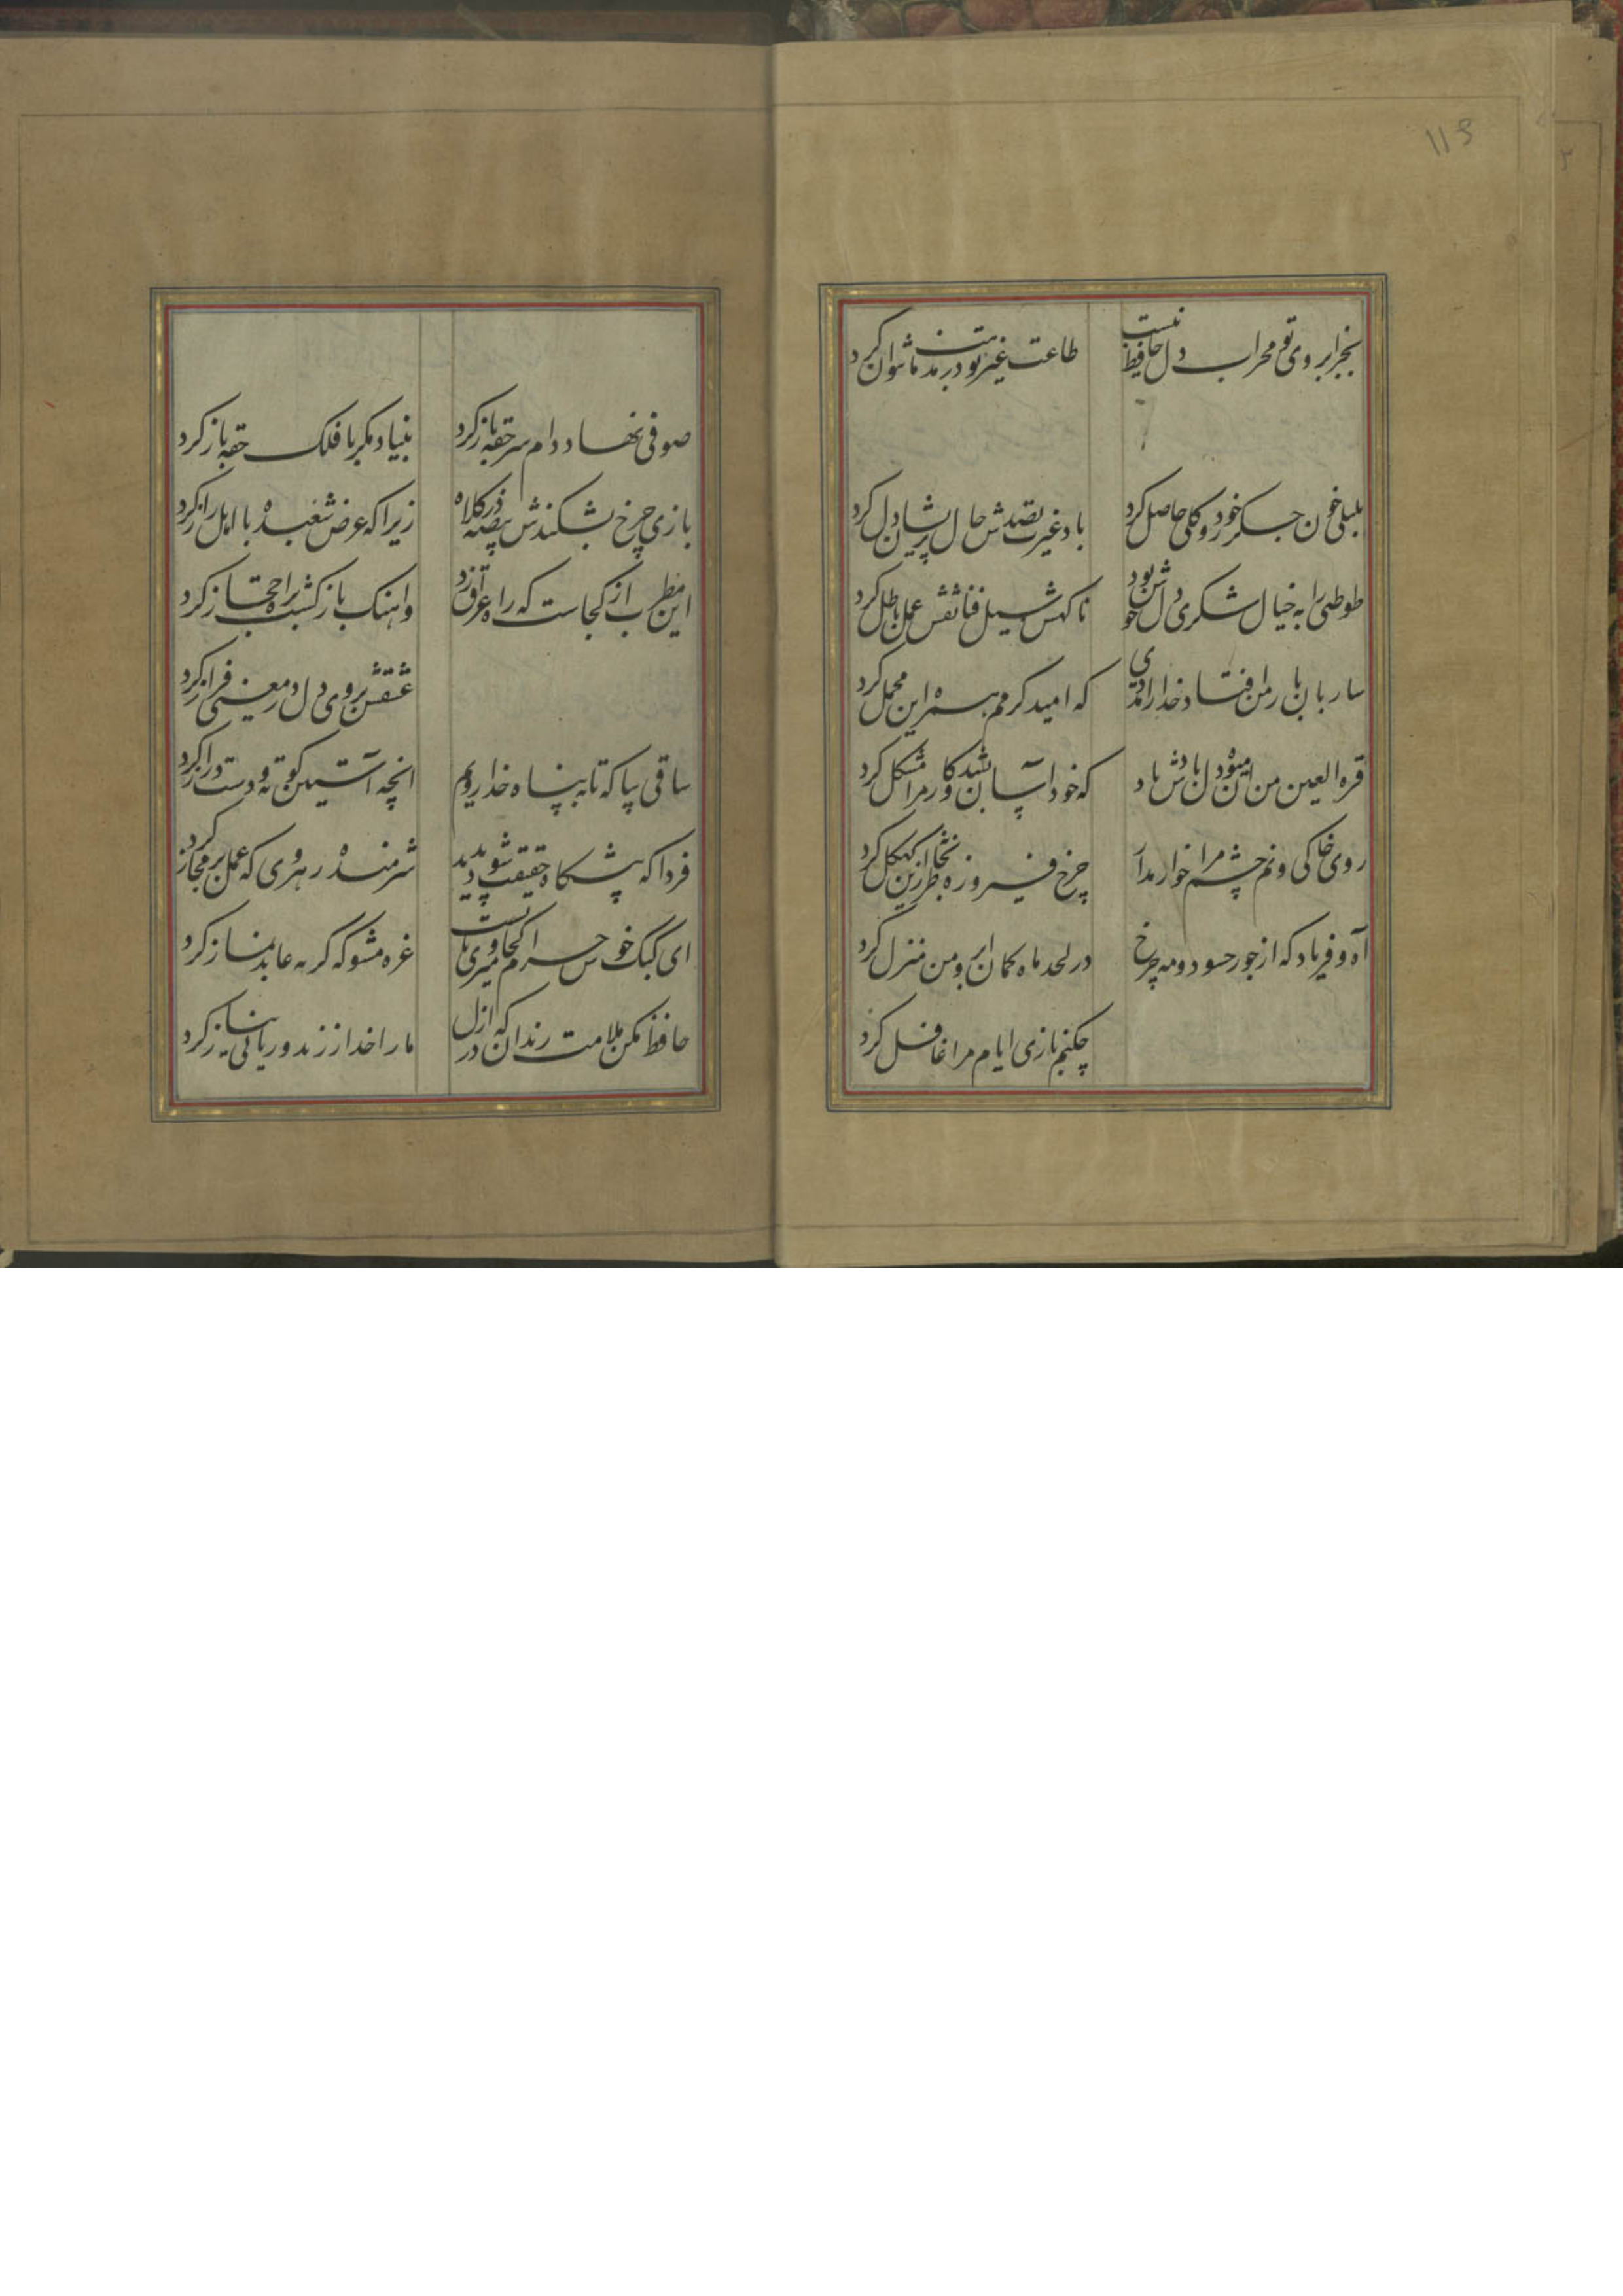 115
بجز ابروی تو محراب دل حافظ نیست
طاعت غیر تو در مذهب ما نتوان کرد
بلبلی خون جگر خورد و گلی حاصل کرد
باد غیرت بصدش حال پریشان دل کرد
طوطی را به خیال شکری دل خوش بود
ناگهش سیل فنا نقش عمل باطل کرد
ساربان بار من افتاد خدا را مددی
که امید کرمم همره این محمل کرد
قرة العین من آن میوه دل یادش باد
که خود آسان بشد و کار مرا مشکل کرد
روی خاکی و نم چشم مرا خوار مدار
چرخ فیروزه طربخانه ازین کهگل کرد
آه و فریاد که از جور حسود و مه چرخ
در لحد ماه کمان ابروی من منزل کرد
چکنم بازی ایام مرا غافل کرد
صوفی نهاد دام سر حقه باز کرد
بنیاد مکر با فلک حقه باز کرد
بازی چرخ بشکندش بیضه در کلاه
زیرا که عرض شعبده با اهل راز کرد
این مطرب از کجاست که راه عراق زد
واهنک باز کشت براه حجاز کرد
عشقش بروی دل در معنی فراز کرد
ساقی بیا که تا به پناه خدا رویم
انچه آستین کوته و دست دراز کرد
فردا که پیشکاه حقیقت شود پدید
شرمنده رهروی که عمل بر مجاز کرد
ای کبک خوش خرام کجا میروی بایست
غره مشو که کربه عابد نماز کرد
حافظ مکن ملامت رندان که در ازل
ما را خدا ز زهد و ریا بی نیاز کرد